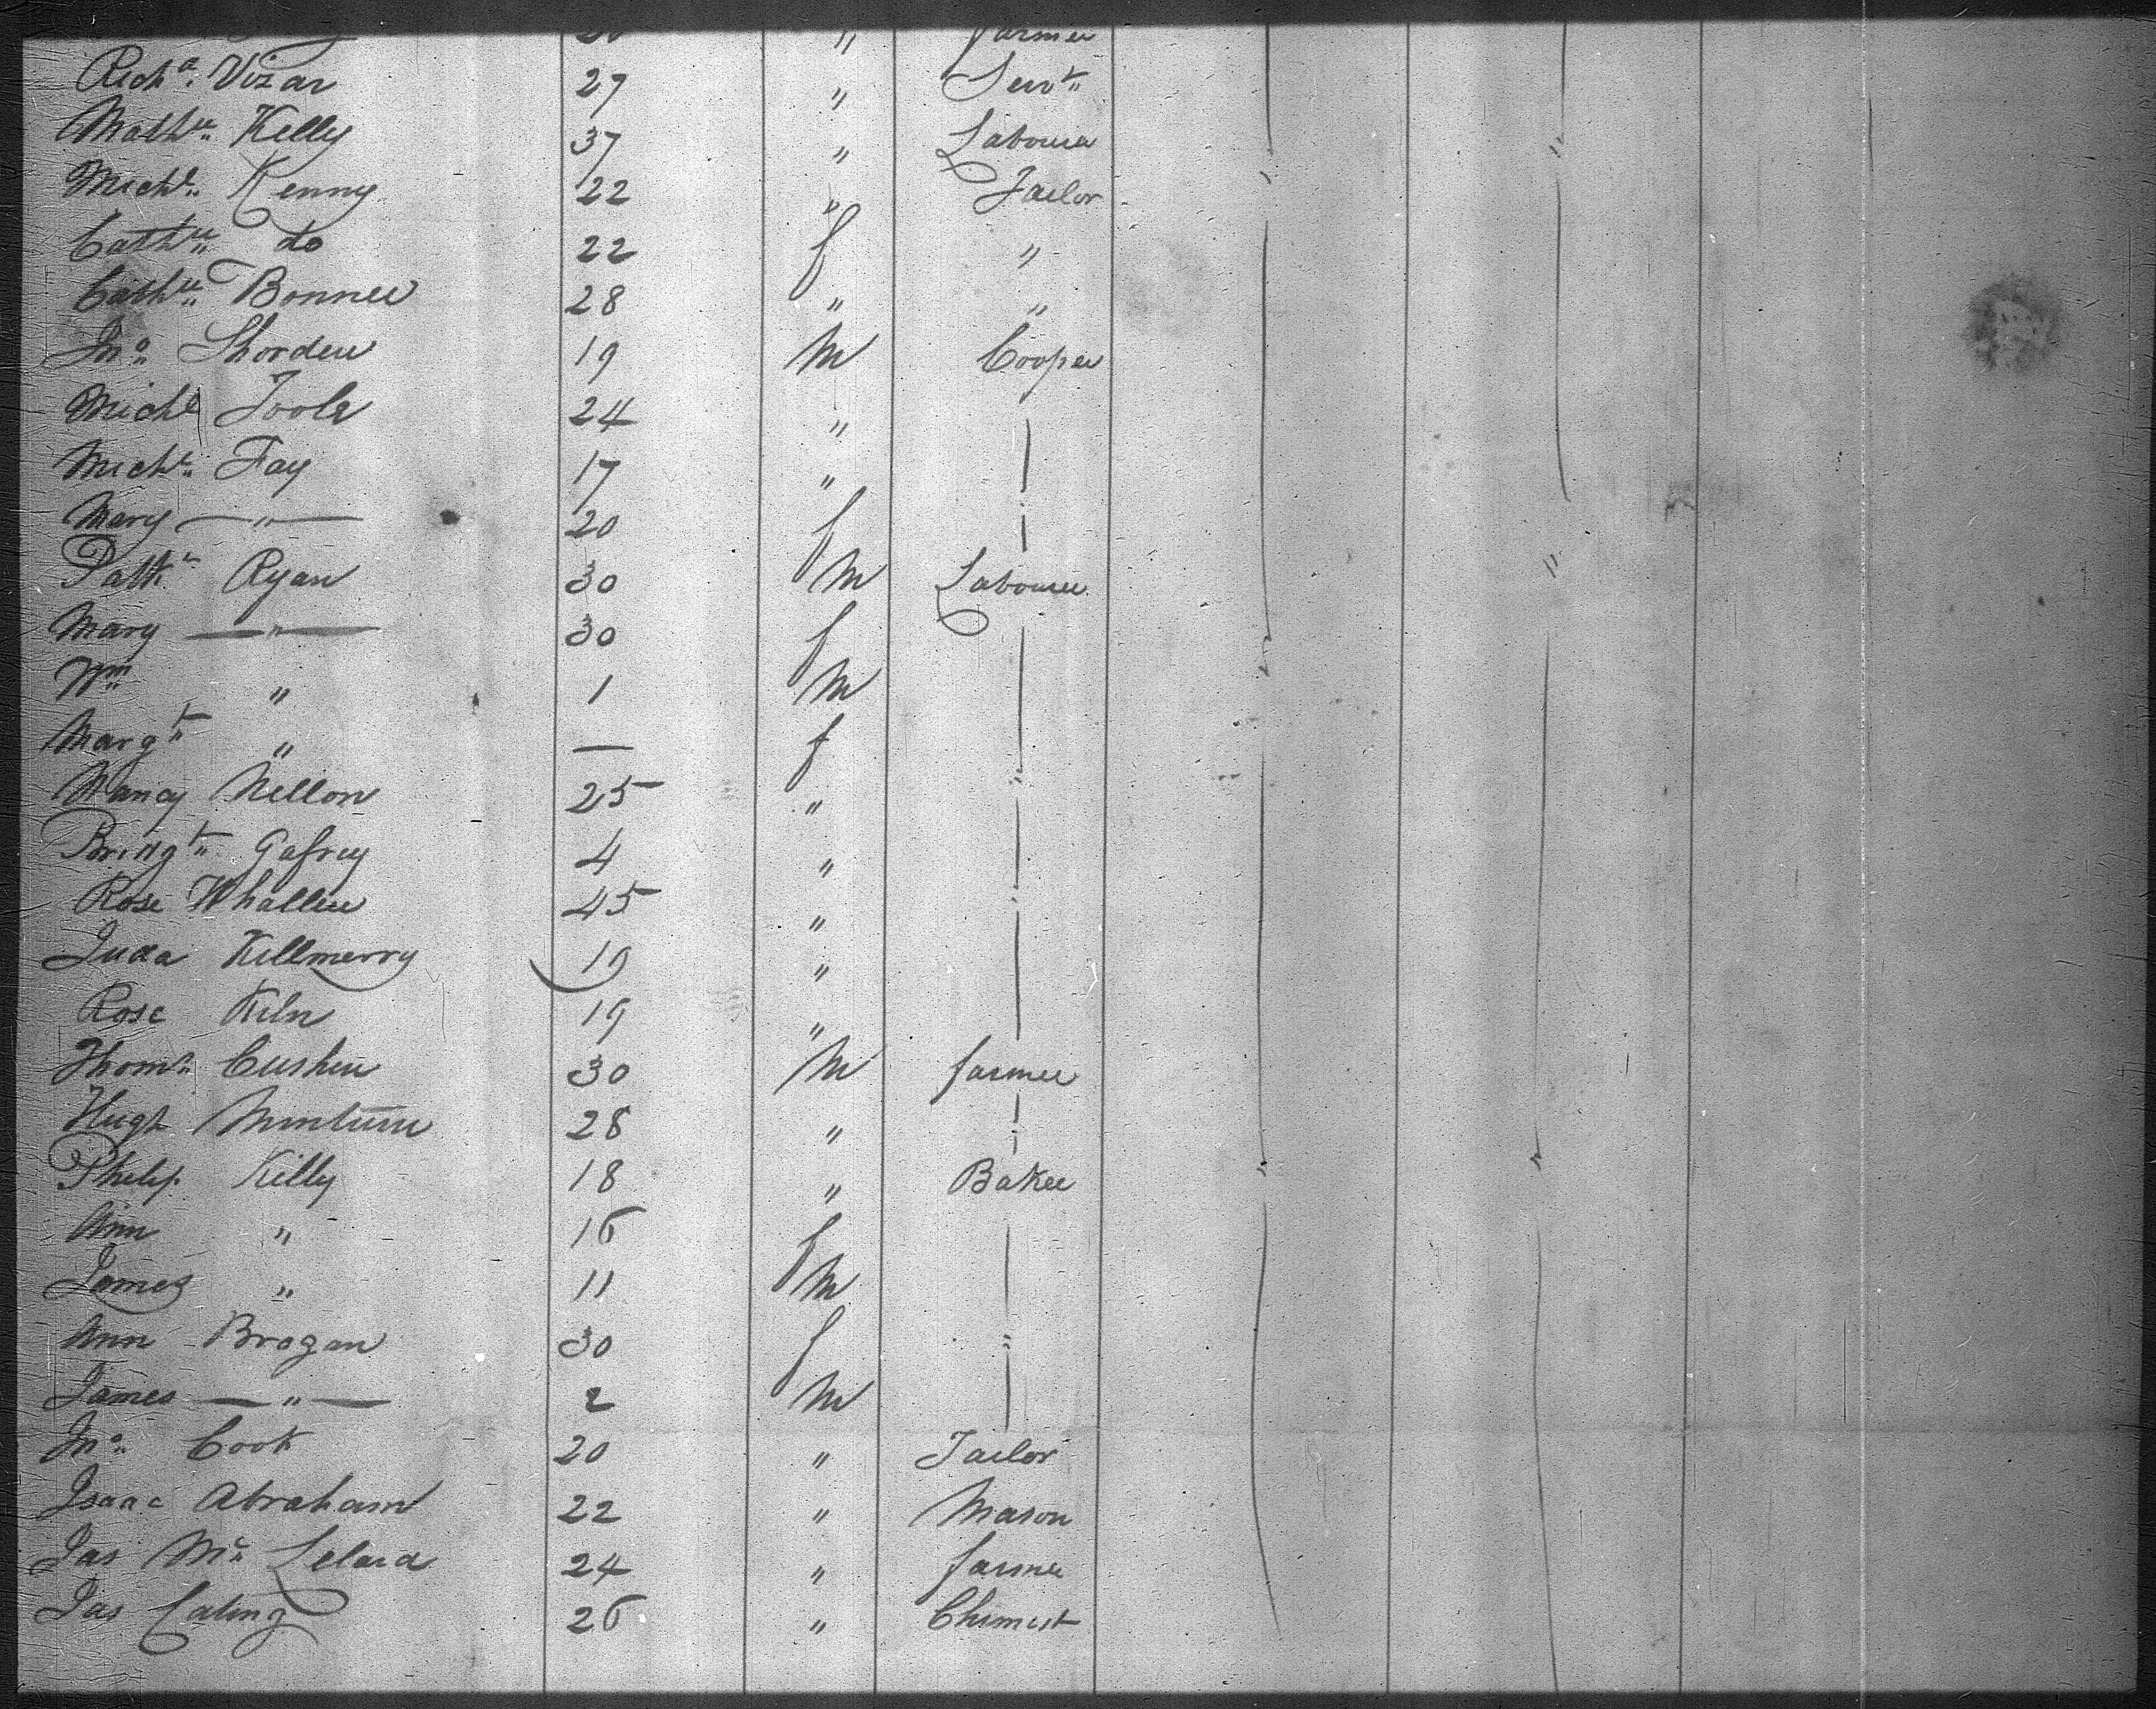 farmer
Richd. Vizar 27 " Servt.
Mathw. Kelly 37 " Labourer
Michl. Kenny 22 " Tailor
Cathne. do 22 f "
Cathne. Bonner 28 " "
Jno. Shorden 19 M Cooper
Michl Toole 24 "
Michl. Fay 17 "
Mary — " — 20 f
Patk. Ryan 30 M Labourer
Mary — " — 30 f
Wm " 1 M
Margt. " — f
Nancy Mellon 25 " "
Bridgt. Gafrey 4 "
Rose Whallen 45 " "
Juda Killmerry 19 "
Rose Keln 19 "
Thoms. Cushen 30 M farmer
Hugh 28 " "
Philip Killy 18 " Baker
Ann " 16 f
James " 11 M
Ann Brogan 30 f "
James — " — 2 M
Jno. Cook 20 " Tailor
Isaac Abraham 22 " Mason
Jas Mc. Lelard 24 " farmer
Jas Caling 26 " Chimist